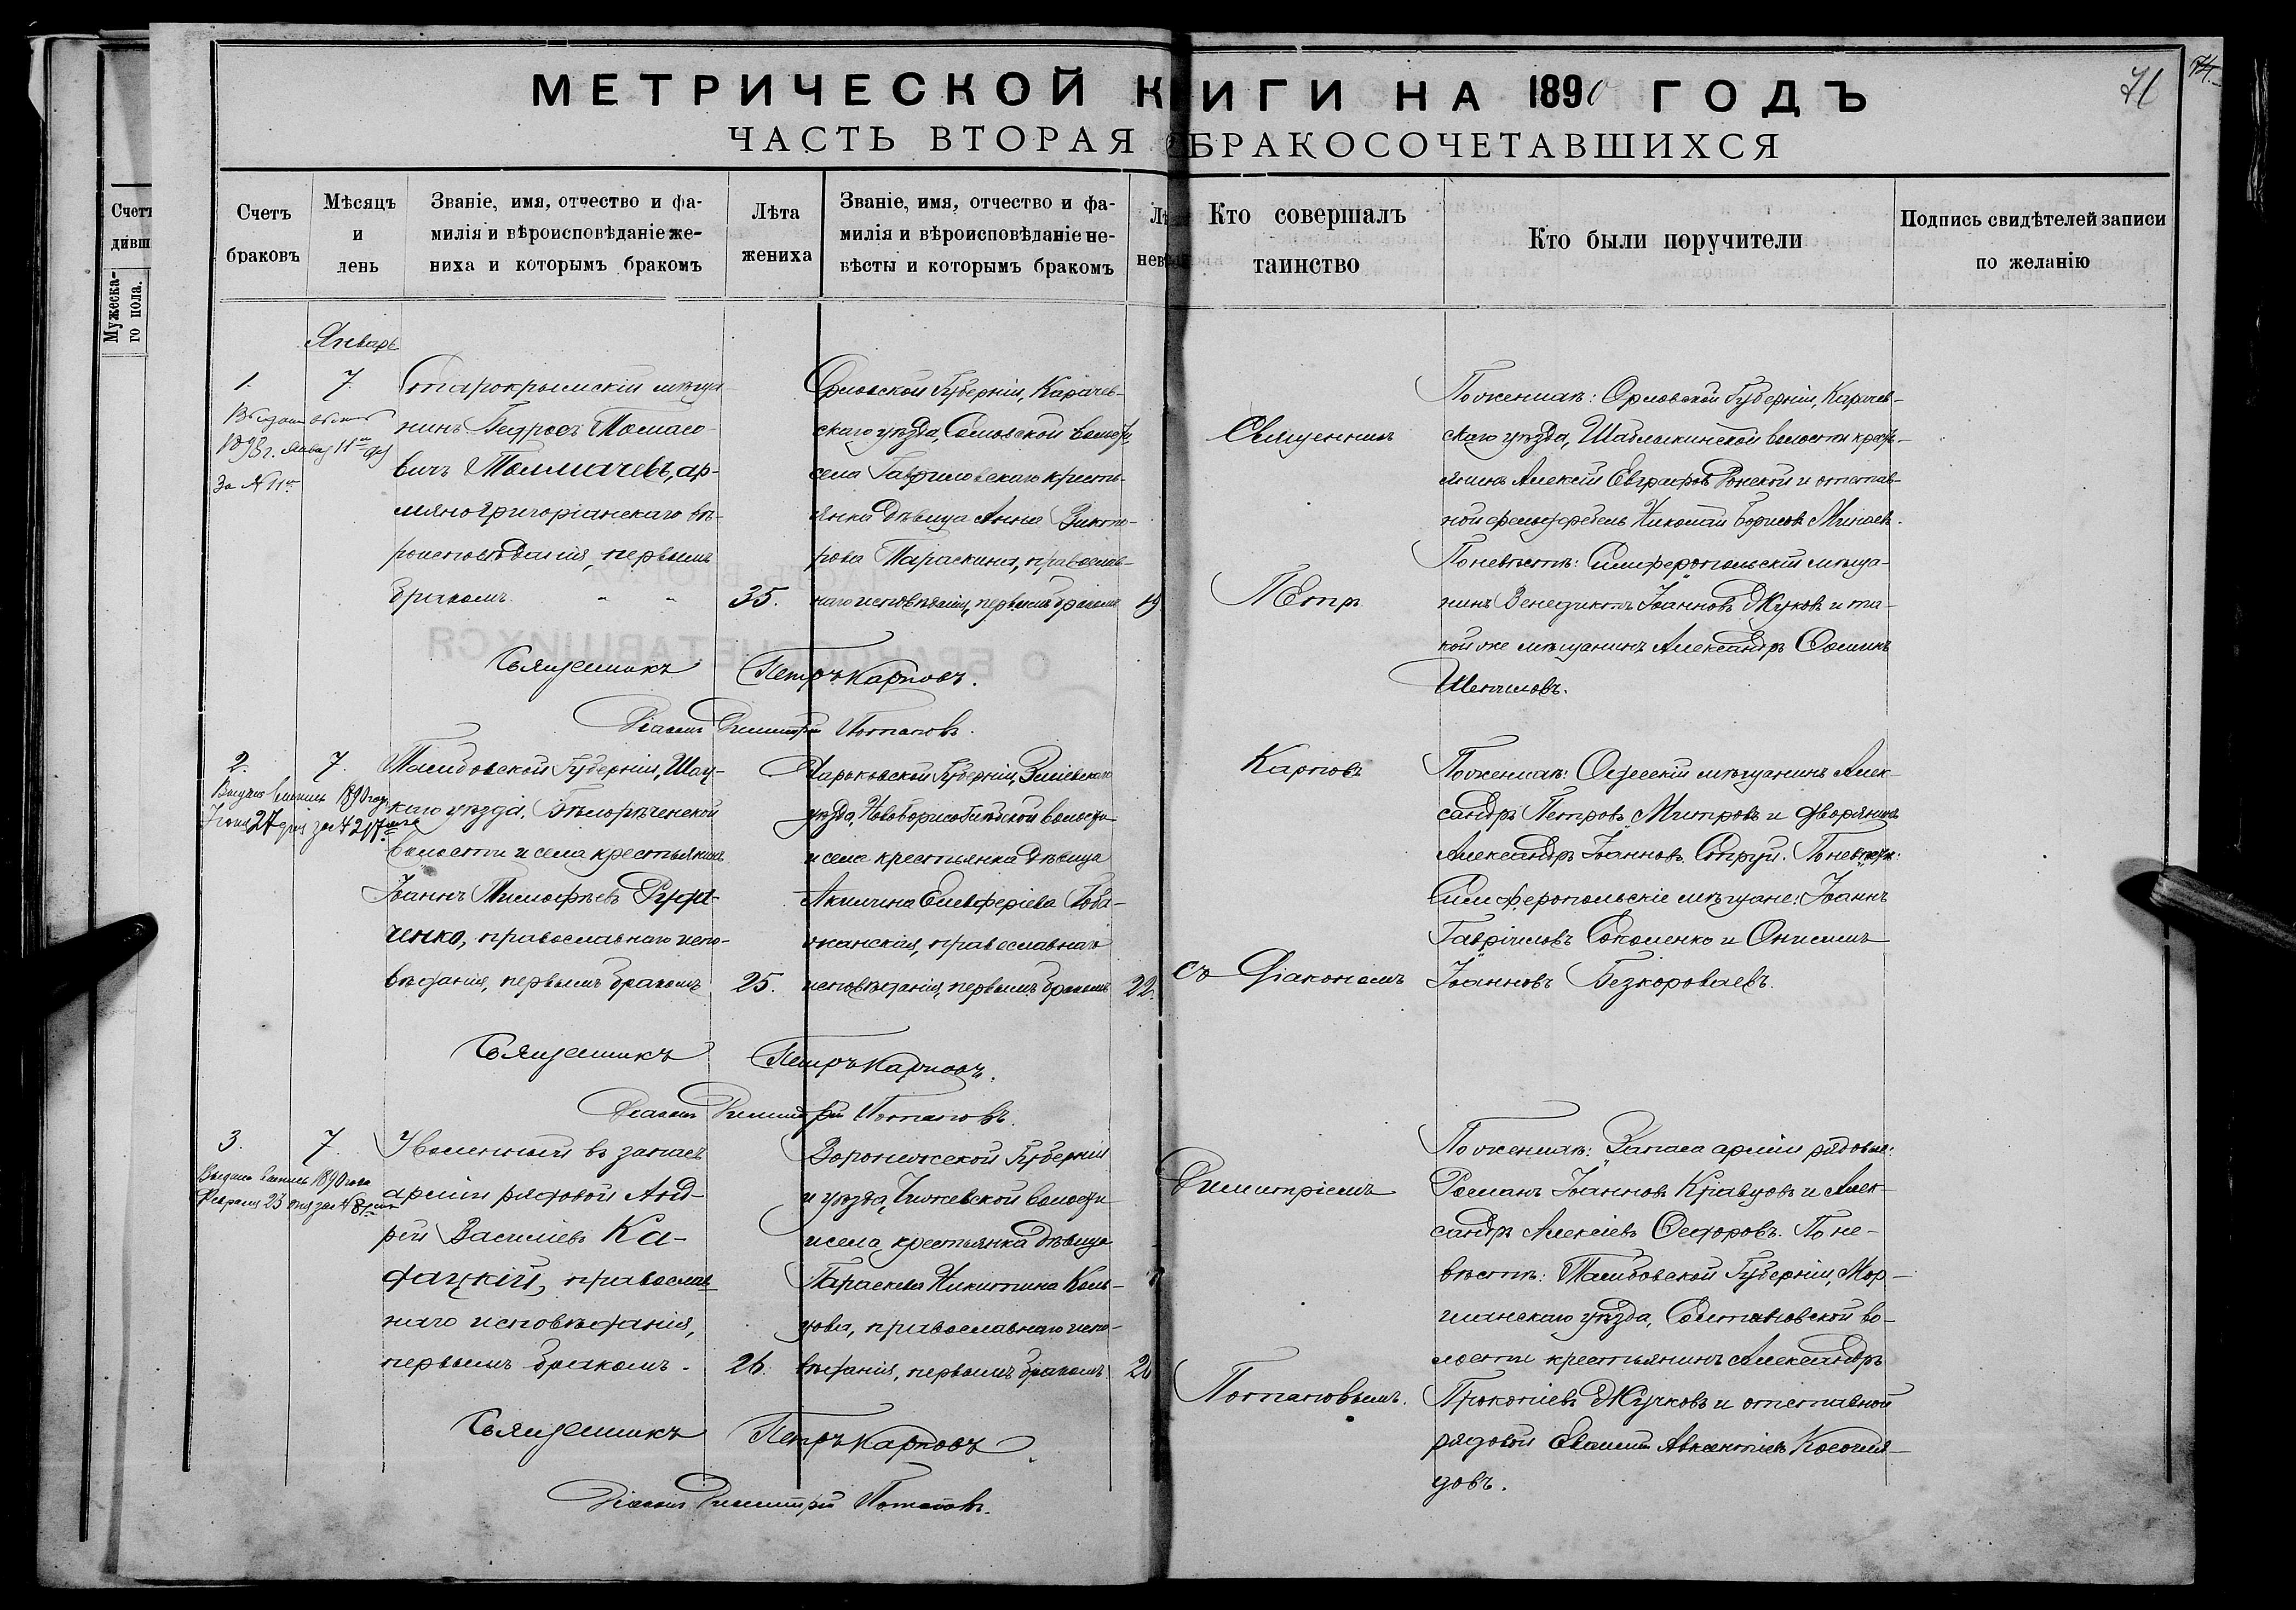 МЕТРИЧЕСКОЙ КНИГИ НА 1890 ГОДЪ
71
74.
ЧАСТЬ ВТОРАЯ О БРАКОСОЧЕТАВШИХСЯ
Счетъ браковъ
Мѣсяцъ и день
Званіе, имя, отчество и фа-
милія и вѣроисповѣданіе же-
ниха и которымъ бракомъ
Лѣта жениха
Званіе, имя, отчество и фа-
милія и вѣроисповѣданіе не-
вѣсты и которымъ бракомъ
Кто совершалъ
таинство
Кто были поручители
Подпись свидѣтелей записи
по желанію
Мужеска-
го пола.
Январь
1.
7.
Старокрымскій мѣща-
нинъ Бедросъ Томасо-
вичъ Толмачевъ, ар-
мяно-григоріанскаго вѣ-
роисповѣданія, первымъ
бракомъ
35.
Орловской Губерніи, Карачев-
скаго уѣзда,
села Гавриловскаго кресть-
янка дѣвица Анна Викто-
рова Тараскина, православ-
наго исповѣданія, первымъ бракомъ
19
Священникъ
Петръ
Карповъ
съ Діакономъ
Димитріемъ
Потаповымъ.
По женихѣ: Орловской Губерніи, Карачев-
скаго уѣзда, Шаблыкинской волости кресть-
янинъ Алексѣй Евграфовъ и отстав-
ной фельдфебель Николай Борисовъ
По невѣстѣ: Симферопольскій мѣща-
нинъ Венедиктъ Іоанновъ Жуковъ и та-
кой же мѣщанинъ Александръ Ѳоминъ
Шепиловъ.
Священникъ Петръ Карповъ.
Діаконъ Димитрій Потаповъ.
2.
7.
Тамбовской Губерніи, Шац-
каго уѣзда,
волости и села крестьянинъ
Іоаннъ Тимофѣевъ Рудч-
ченко, православнаго испо-
вѣданія, первымъ бракомъ
25.
Харьковской Губерніи, Зміевскаго
уѣзда, Новоборисоглѣбской волости
и села крестьянка дѣвица
Акилина Елевферіева
православнаго
исповѣданія, первымъ бракомъ
22.
По женихѣ: Одесскій мѣщанинъ Алек-
сандръ Петровъ Митровъ и дворянинъ
Александръ Іоанновъ По невѣстѣ:
Симферопольскіе мѣщане: Іоаннъ
Гавріиловъ Соколенко и Онисимъ
Іоанновъ Безкороваевъ.
Священникъ Петръ Карповъ.
Діаконъ Димитрій Потаповъ.
3.
7.
Уволенный въ запасъ
арміи рядовой Анд-
рей Василіевъ Ка-
дацкій, православ-
наго исповѣданія,
первымъ бракомъ.
26.
Воронежской Губерніи
и уѣзда, волости
и села, крестьянка дѣвица
Параскева Никитина Коль-
цова, православнаго испо-
вѣданія, первымъ бракомъ
По женихѣ: Запаса арміи рядовые:
Романъ Іоанновъ Кравцовъ и Алек-
сандръ Алексіевъ Ѳедоровъ. По не-
вѣстѣ: Тамбовской Губерніи, Мор-
шанскаго уѣзда, во-
лости крестьянинъ Александръ
Прокопіевъ Жучковъ и отставной
рядовой Авксентіевъ
Священникъ Петръ Карповъ.
Діаконъ Димитрій Потаповъ.